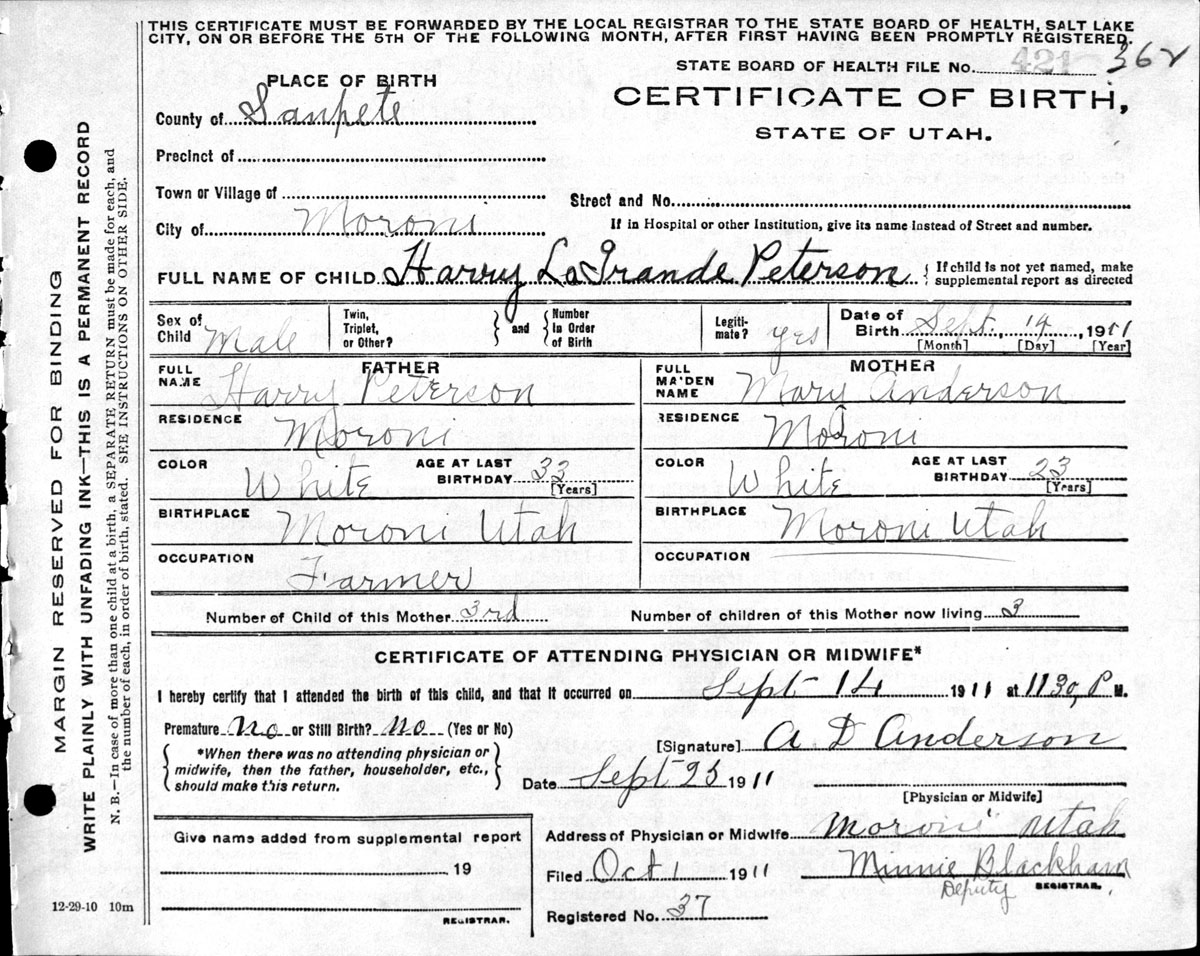 THIS CERTIFICATE MUST BE FORWARDED BY THE LOCAL REGISTRAR TO THE STATE BOARD OF HEALTH, SALT LAKE
CITY, ON OR BEFORE THE 5TH OF THE FOLLOWING MONTH, AFTER FIRST HAVING BEEN PROMPTLY REGISTERED.
STATE BOARD OF HEALTH FILE No. 421 362
PLACE OF BIRTH
CERTIFICATE OF BIRTH,
STATE OF UTAH.
County of Sanpete
Precinct of
Town or Village of
Street and No.
City of Moroni
If in Hospital or other Institution, give its name instead of Street and number.
FULL NAME OF CHILD Harry LaGrande Peterson { If child is not yet named, make
supplemental report as directed
Sex of Child Male
Twin, Triplet, or Other? } and { Number in Order of Birth
Legiti-mate? yes
Date of Birth Sept. 14, 1911
[Month] [Day] [Year]
FATHER
FULL NAME Harry Peterson
RESIDENCE Moroni
COLOR White AGE AT LAST BIRTHDAY 33 [Years]
BIRTHPLACE Moroni Utah
OCCUPATION Farmer
MOTHER
FULL MAIDEN NAME Mary Anderson
RESIDENCE Moroni
COLOR White AGE AT LAST BIRTHDAY 23 [Years]
BIRTHPLACE Moroni Utah
OCCUPATION
Number of Child of this Mother 3rd Number of children of this Mother now living 3
CERTIFICATE OF ATTENDING PHYSICIAN OR MIDWIFE*
I hereby certify that I attended the birth of this child, and that it occurred on Sept 14 1911 at 1130, P M.
Premature No or Still Birth? No (Yes or No)
*When there was no attending physician or
midwife, then the father, householder, etc.,
should make this return.
[Signature] A D Anderson
Date Sept 25 1911
[Physician or Midwife]
Give name added from supplemental report
19
REGISTRAR.
Address of Physician or Midwife Moroni Utah
Filed Oct 1 1911 Minnie Blackham
Deputy REGISTRAR.
Registered No. 37
12-29-10 10m
MARGIN RESERVED FOR BINDING
WRITE PLAINLY WITH UNFADING INK—THIS IS A PERMANENT RECORD
N. B.—In case of more than one child at a birth, a SEPARATE RETURN must be made for each, and
the number of each, in order of birth, stated. SEE INSTRUCTIONS ON OTHER SIDE.